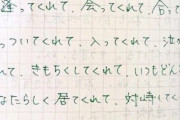 逢ってくれて、会ってくれて、合って
っついてくれて、入ってくれて、
て、きもちくしてくれて、いつもどん
なたらしく居てくれて、対峙してく